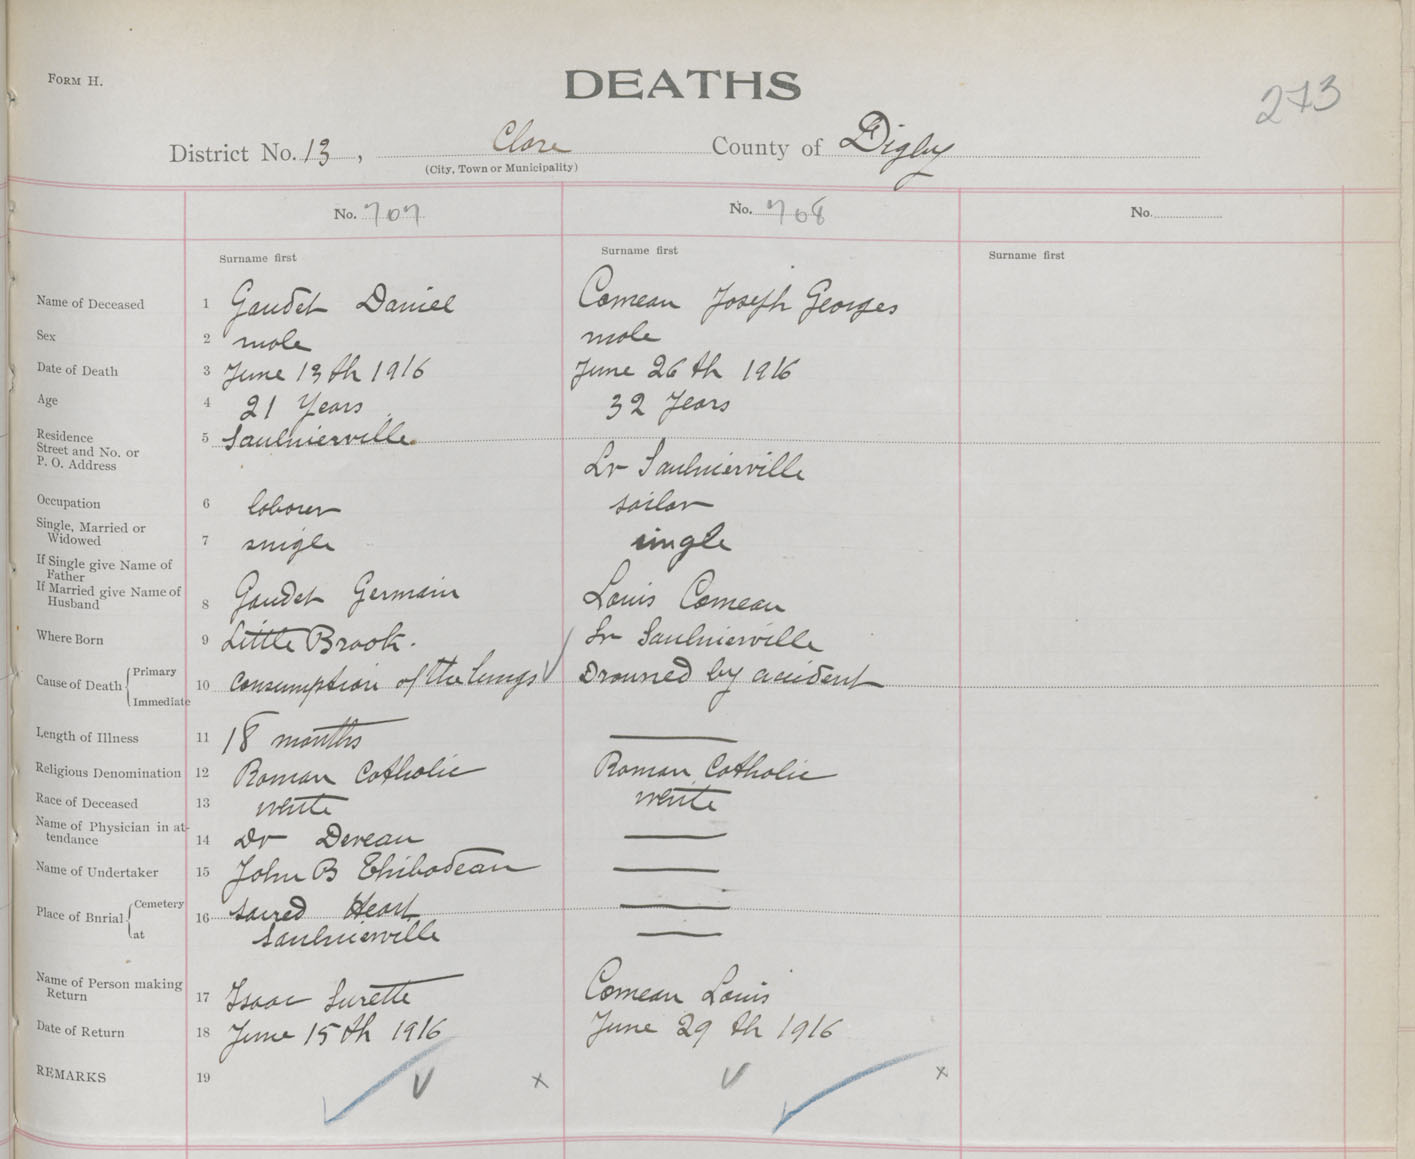 FORM H.
DEATHS
273
District No. 13, Clare County of Digby
(City, Town or Municipality)
No. 707 No. 708 No.
Surname first Surname first Surname first
Name of Deceased 1 Gaudet Daniel Comeau Joseph Georges
Sex 2 male male
Date of Death 3 June 13th 1916 June 26th 1916
Age 4 21 Years 32 Years
Residence
Street and No. or
P. O. Address 5 Saulnierville. Lr Saulnierville
Occupation 6 laborer sailor
Single, Married or
Widowed 7 single single
If Single give Name of
Father
If Married give Name of
Husband 8 Gaudet Germain Louis Comeau
Where Born 9 Little Brook. Lr Saulnierville
Cause of Death Primary
Immediate 10 Consumption of the lungs Drouned by accident
Length of Illness 11 18 months
Religious Denomination 12 Roman Catholic Roman Catholic
Race of Deceased 13 white white
Name of Physician in at-
tendance 14 Dr Deveau
Name of Undertaker 15 John B Thibodeau
Place of Burial Cemetery
at 16 Sacred Heart
Saulnierville
Name of Person making
Return 17 Isaac Surette Comeau Louis
Date of Return 18 June 15th 1916 June 29th 1916
REMARKS 19 x x